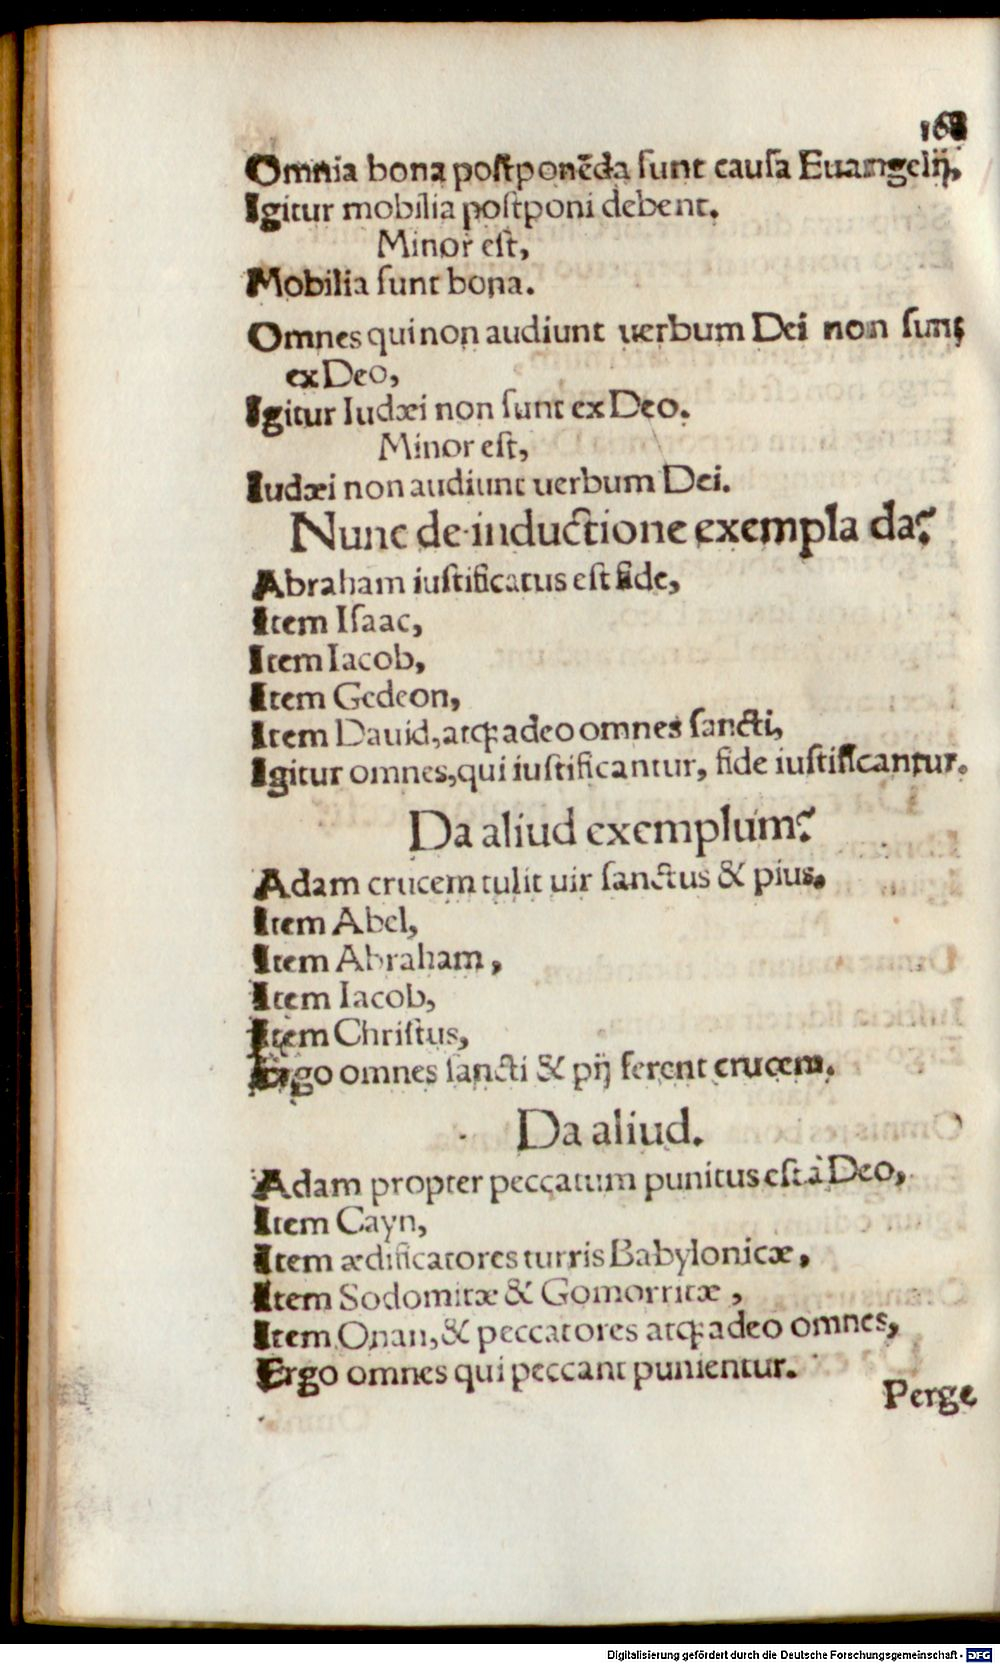 Omnia bona postponēda sunt causa Euangelij,
Igitur mobilia postponi debent.
Minor est,
Mobilia sunt bona.
Omnes qui non audiunt uerbum Dei non sunt
ex Deo,
Igitur Iudæi non sunt ex Deo.
Minor est,
Iudæi non audiunt uerbum Dei.
Nunc de inductione exempla da?
Abraham iustificatus est fide,
Item Isaac,
Item Iacob,
Item Gedeon,
Item Dauid, atq; adeo omnes sancti,
Igitur omnes, qui iustificantur, fide iustificantur.
Da aliud exemplum?
Adam crucem tulit uir sanctus & pius.
Item Abel,
Item Abraham,
Item Iacob,
Item Christus,
Ergo omnes sancti & pij ferent crucem.
Da aliud.
Adam propter peccatum punitus est à Deo,
Item Cayn,
Item ædificatores turris Babylonicæ,
Item Sodomitæ & Gomorritæ,
Item Onan, & peccatores atq; adeo omnes,
Ergo omnes qui peccant punientur.
Perge
Digitalisierung gefördert durch die Deutsche Forschungsgemeinschaft - DFG